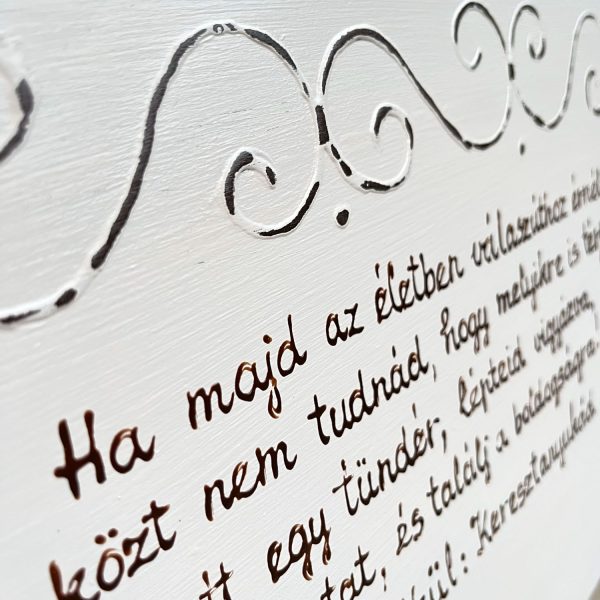 Ha majd az életben válaszúthoz érnél
közt nem tudnád, hogy melyikre is
egy tündér, lépteid vigyázva,
és találj a boldogságra.
Keresztanyukád